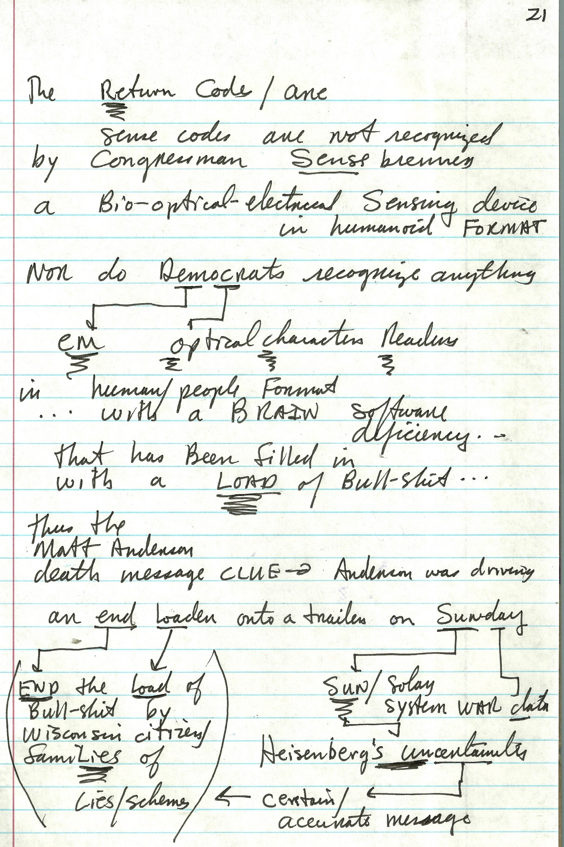 21
The Return Code / are
sense codes are not recognized
by Congressman Sensebrenner
a Bio-optical-electrical Sensing device
in humanoid FORMAT
Nor do Democrats recognize anything
em optical characters Readers
in human/people Format
... with a BRAIN software
deficiency...
that has Been filled in
with a LOAD of Bull-shit ...
thus the
Matt Anderson
death message CLUE → Anderson was driving
an end loader onto a trailer on Sunday
END the Load of
Bull-shit by
Wisconsin citizen/
famiLies of
Lies/schemes
SUN/solar
system WAR data
Heisenberg's uncertainty
← certain/
accurate message